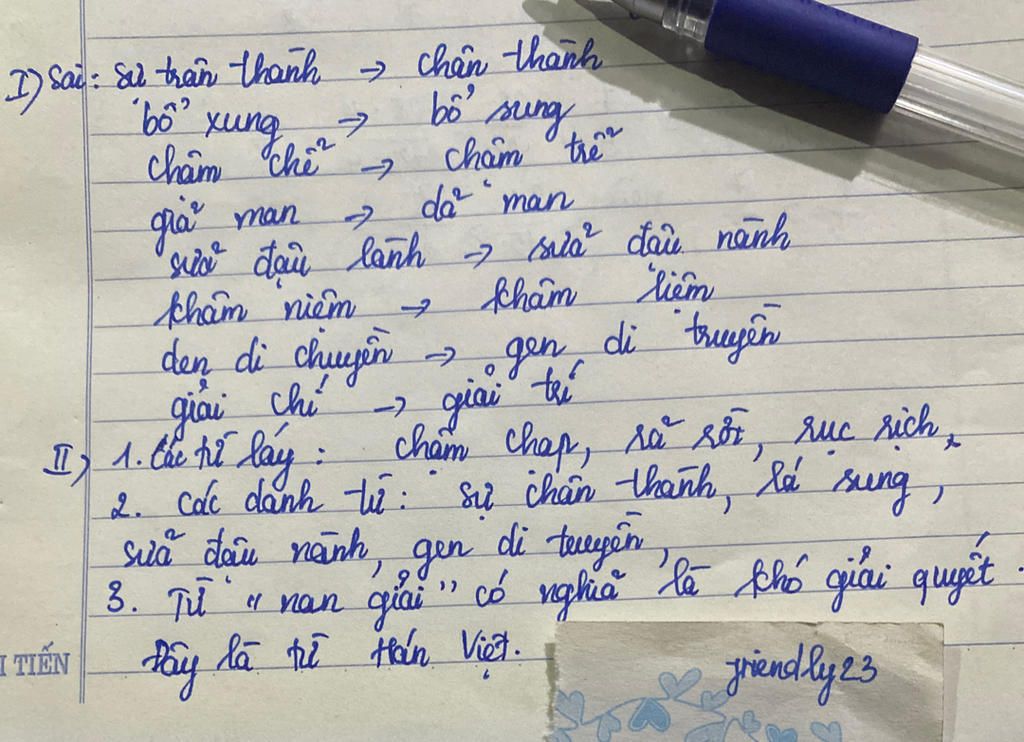 I) Sai: sự trân thành → chân thành
bổ xung → bổ sung
chậm chễ → chậm trễ
giã man → dã man
sữa đậu lành → sữa đậu nành
khâm niệm → khâm liệm
den di chuyền → gen di truyền
giải chí → giải trí
II) 1. Các từ láy: chậm chạp, rã rời, rục rịch,
2. các danh từ: sự chân thành, lá sung,
sữa đậu nành, gen di truyền,
3. Từ "nan giải" có nghĩa là khó giải quyết.
Đây là từ Hán Việt.
I TIẾN
friendly23